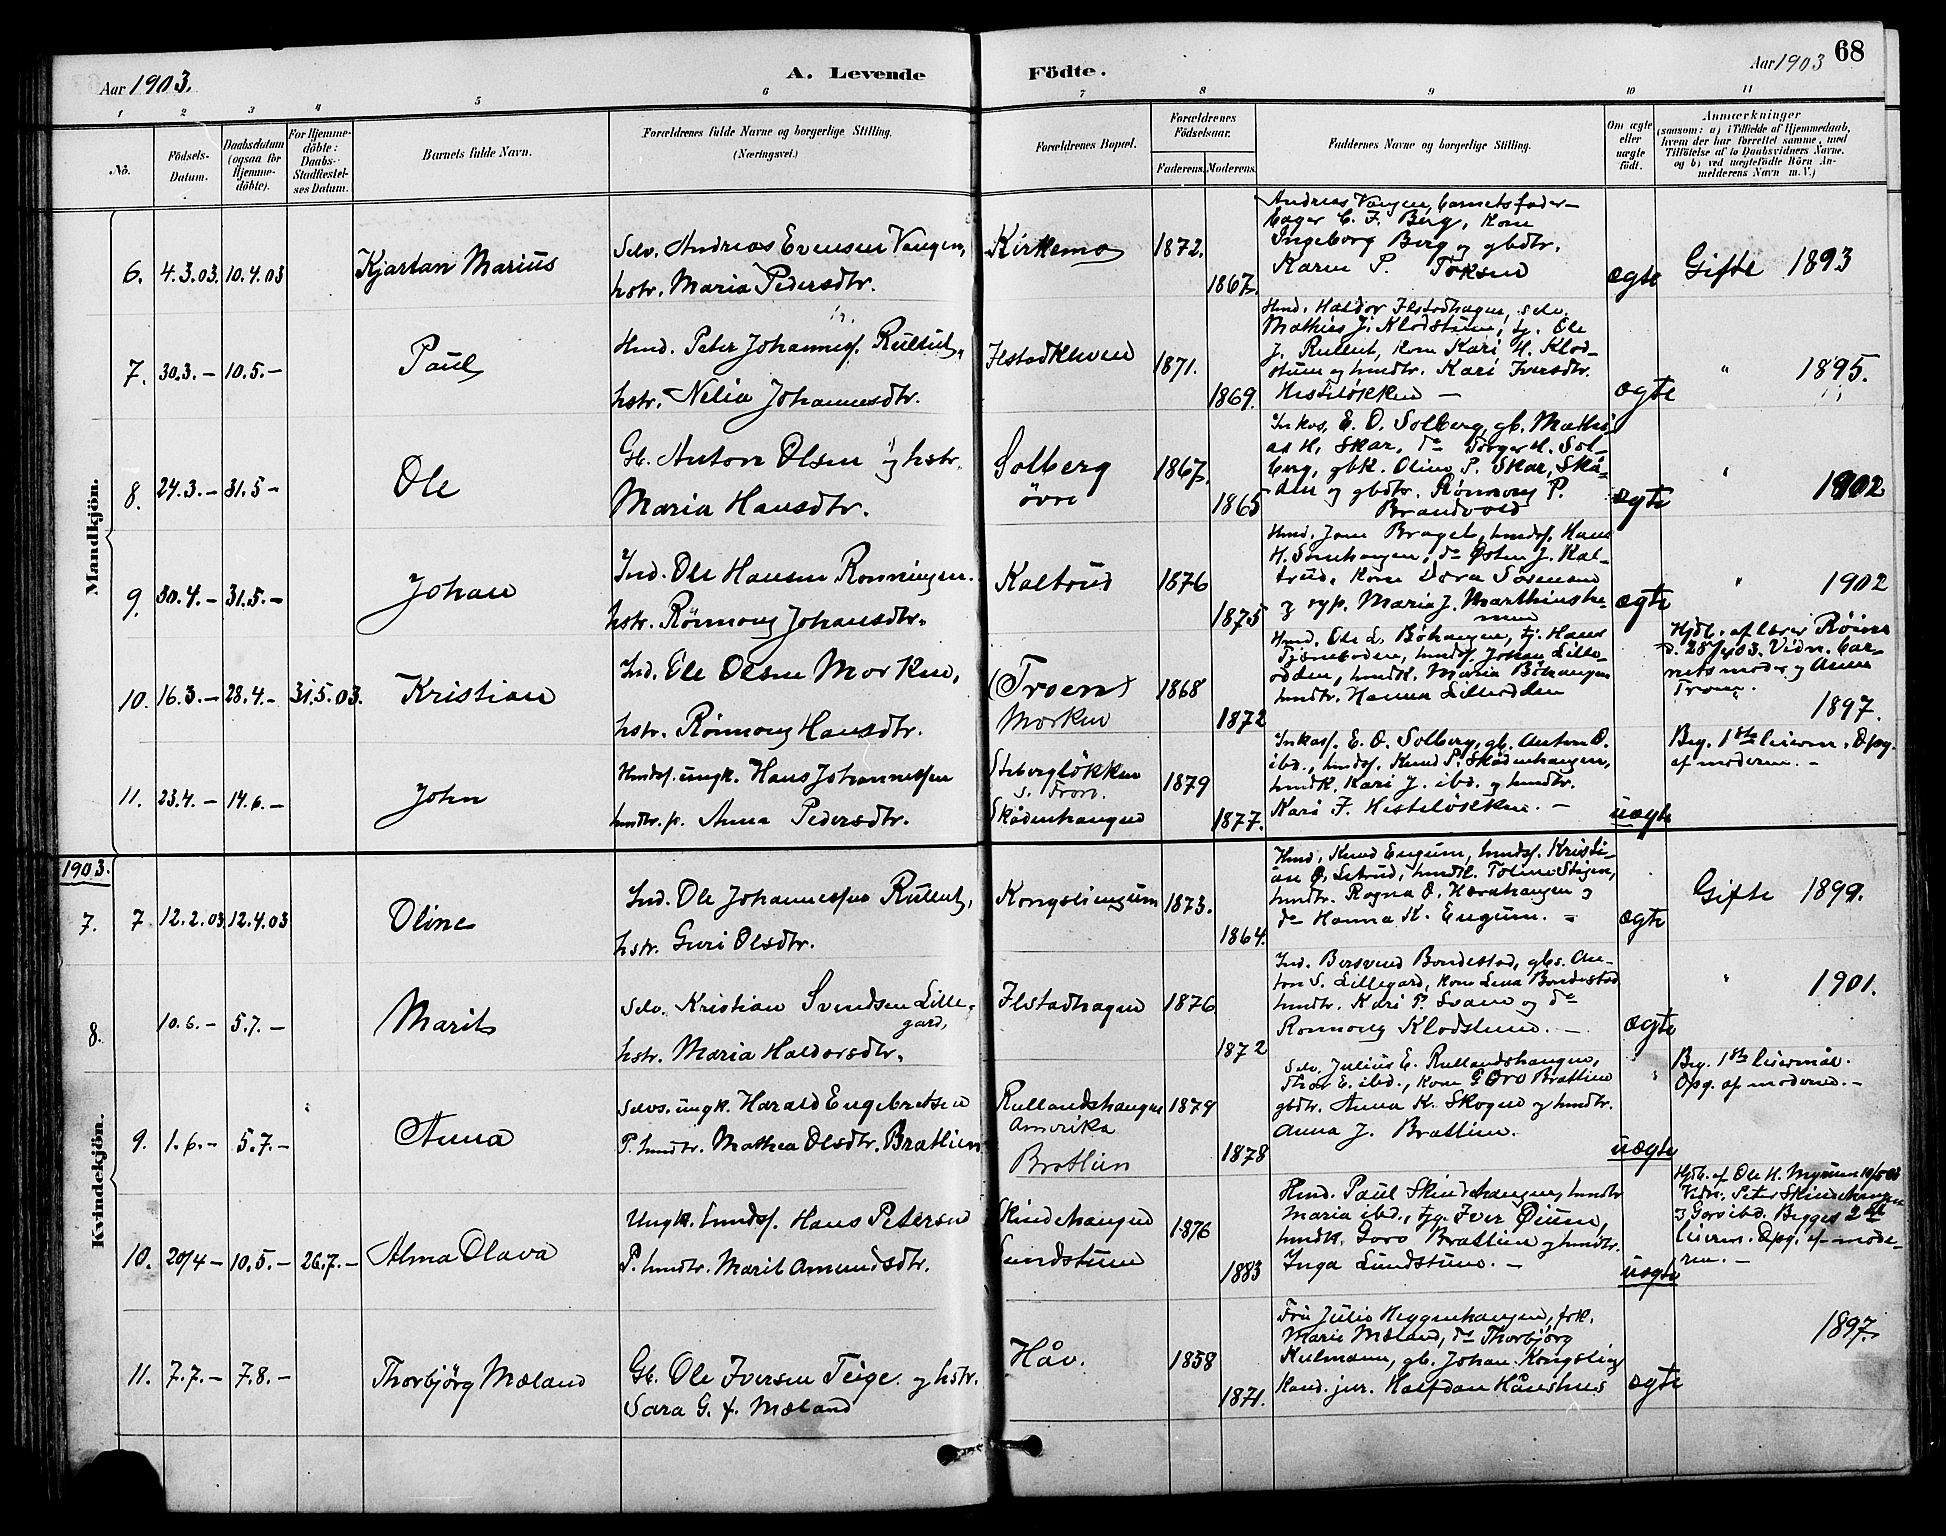 68
Aar 1903.
A. Levende
Födte.
Aar 1903
1 2 3 4 5 6 7 8 9 10 11
No.
Födsels-
Datum.
Daabsdatum
(ogsaa for
Hjemme-
döbte).
For Hjemme-
döbte:
Daabs-
Stadfæstel-
ses Datum.
Barnets fulde Navn.
Forældrenes fulde Navne og borgerlige Stilling.
(Næringsvei.)
Forældrenes Bopæl.
Forældrenes
Födselsaar.
Faderens. Moderens.
Faddernes Navne og borgerlige Stilling.
Om ægte
eller
uægte
födt.
Anmærkninger
(saasom: a) i Tilfælde af Hjemmedaab,
hvem der har forrettet samme, med
Tilföielse af to Daabsvidners Navne,
og b) ved uægtefödte Börn An-
melderens Navn m. V.)
Mandkjön.
6. 4.3.03. 10.4.03 Kjartan Marius
Selv. Andreas Evensen Vangen,
hstr. Maria Pedersdtr.
Kirkemo 1872.
1867.
Andreas Vangen, barnets fader
bager C. F. Berg, kone
Ingeborg Berg og gbdtr.
Karen P.
ægte Gifte 1893
7. 30.3. – 10.5. – Paul
Hmd. Peter Johannesf. Rullut,
hstr. Nelia Johannesdtr.
Ilstadkleven 1871.
1869.
Hmd. Haldor Ilstadhagen, selv.
Mathias J. Klodstuen, tj. Ole
J. Rullut, kone Kari H. Klod-
stuen og hmdtr. Kari Iversdtr.
Hesteløkken –
ægte " 1895.
8. 24.3. – 31.5 – Ole
Gb. Anton Olsen og hstr.
Maria Hansdtr.
Solberg
øvre 1867.
1865
Inkas. E. O. Solberg, gb. Mathi
as H. Skar, do Torger H. Sol-
berg, gbk. Oline P. Skar, Skå-
den og gbdtr. Rønnoug P.
Brandvold
ægte " 1902
9. 30.4. – 31.5. – Johan
Ind. Ole Hansen Ronningen.
hstr. Rønnoug Johansdtr.
Kaltrud 1876
1875
Hmd. Jone Braget, hmdsf. Hans
H. Sønehaugen, do Østen J. Kal-
trud, kone Dora Sørensen
og syp. Maria J. Marthinshe-
men
ægte " 1902
10. 16.3. – 28.4. – 31.5.03. Kristian
Ind. Ole Olsen Morken,
hstr. Rønnoug Hansdtr.
(Troen)
Morken 1868
1872
Hmd. Ole L. Böhaugen, tj. Hans
hmdsf. Johan Lille-
odden, hmdk. Maria Böhaugen
hmdtr. Hanna Lilleodden
Hjdb. af lærer Røine
d. 28/4 03. Vidn. bar-
nets moder og Anne
Troen.
1897.
11. 23.4. – 14.6. – John
Hmdsf. ungk. Hans Johannessen
hmdtr. p. Anna Pedersdtr.
s. Fron.
Skådenhaugen 1879
1877.
Inkass. E. O. Solberg, gb. Anton O.
ibd., hmdsf. Knud P. Skådenhaugen,
hmdk. Kari J. ibd. og hmdtr.
Kari J. Hesteløkken. –
uægte
Beg. 1ste leierm. Opg.
af moderen. –
1903.
Kvindekjön.
7. 7 12.2.03 12.4.03 Oline
Ind. Ole Johannessen Rullut,
hstr. Guri Olsdtr.
Kongsliengum 1873.
1864.
Hmd. Knud Engum, hmdsf. Kristi-
an O. Letrud, hmdk. Toline Stigen,
hmdtr. Ragna O. Hornhaugen og
do Hanna K. Engum. –
ægte Gifte 1899.
8. 10.6. – 5.7. – Marit
Selv. Kristian Svendsen Lille-
gard,
hstr. Maria Haldorsdtr.
Ilstadhagen 1876
1872
Ind. Bersvend Bondestad, gbs. An-
ton S. Lillegard, kone Lina Bondestad
hmdtr. Kari P. Svane og do
Ronnoug Klodstuen. –
ægte " 1901.
9. 1.6. – 5.7. – Anna
Selvs. ungk. Harald Engebretsen
P. hmdtr. Mathea Olsdtr. Bratlien
Rullandshaugen
Amerika
Bratlien 1879
1878
Selv. Julius E. Rullandshaugen,
Thor E. ibd., kone Goro Bratlien
gbdtr. Anna K. Skogen og hmdtr.
Anna J. Bratlien.
uægte
Beg. 1ste leiermål.
Opg. af moderen. –
10. 20/4 – 10.5. – 26.7. – Alma Olava
Ungk. hmdsf. Hans Petersen
P. hmdtr. Marit Amundsdtr.
Skindehaugen
Lundstuen 1876
1883
Hmd. Paul Skindehaugen, hmdtr
Maria ibd., tjg. Iver Øium,
hmdk. Goro Bratlien og hmdtr.
Inga Lundstuen. –
uægte
Hjdb. af Ole H. Myrum 10/5 03
Vidn. Peter Skindehaugen
og Goro ibd. Begges 2det
leierm. Opg. af mode-
ren. –
11. 7.7. – 7.8. – Thorbjörg Mæland
Gb. Ole Iversen Teige og hstr.
Sara G. f. Mæland
Håv. 1858
1871.
Fru Julie Heggenhaugen, frk.
Marie Mæland, do Thorbjörg
Kulmann, gb. Johan Kongslie
Kand. jur. Halfdan Håneshus
ægte 1897.